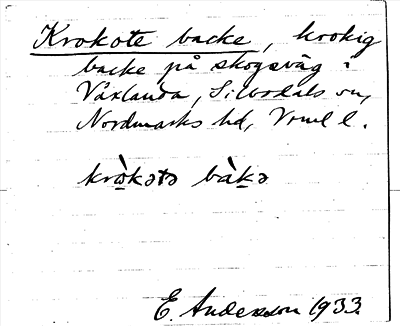 Krokote backe, krokig
backe på skogsväg i
Växlanda, Silbodals sn,
Nordmarks hd, Vrml l.
kròkətə bàkə
E. Andersson 1933.